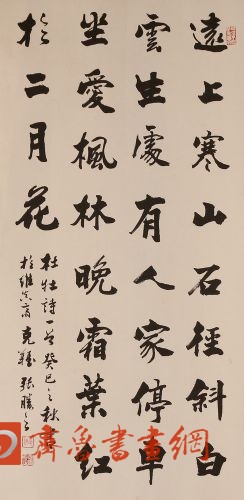 遠上寒山石徑斜白
雲生處有人家停車
坐愛楓林晚霜葉紅
於二月花
杜牧詩一首癸巳之秋
於維 張勝
齊魯書畫網